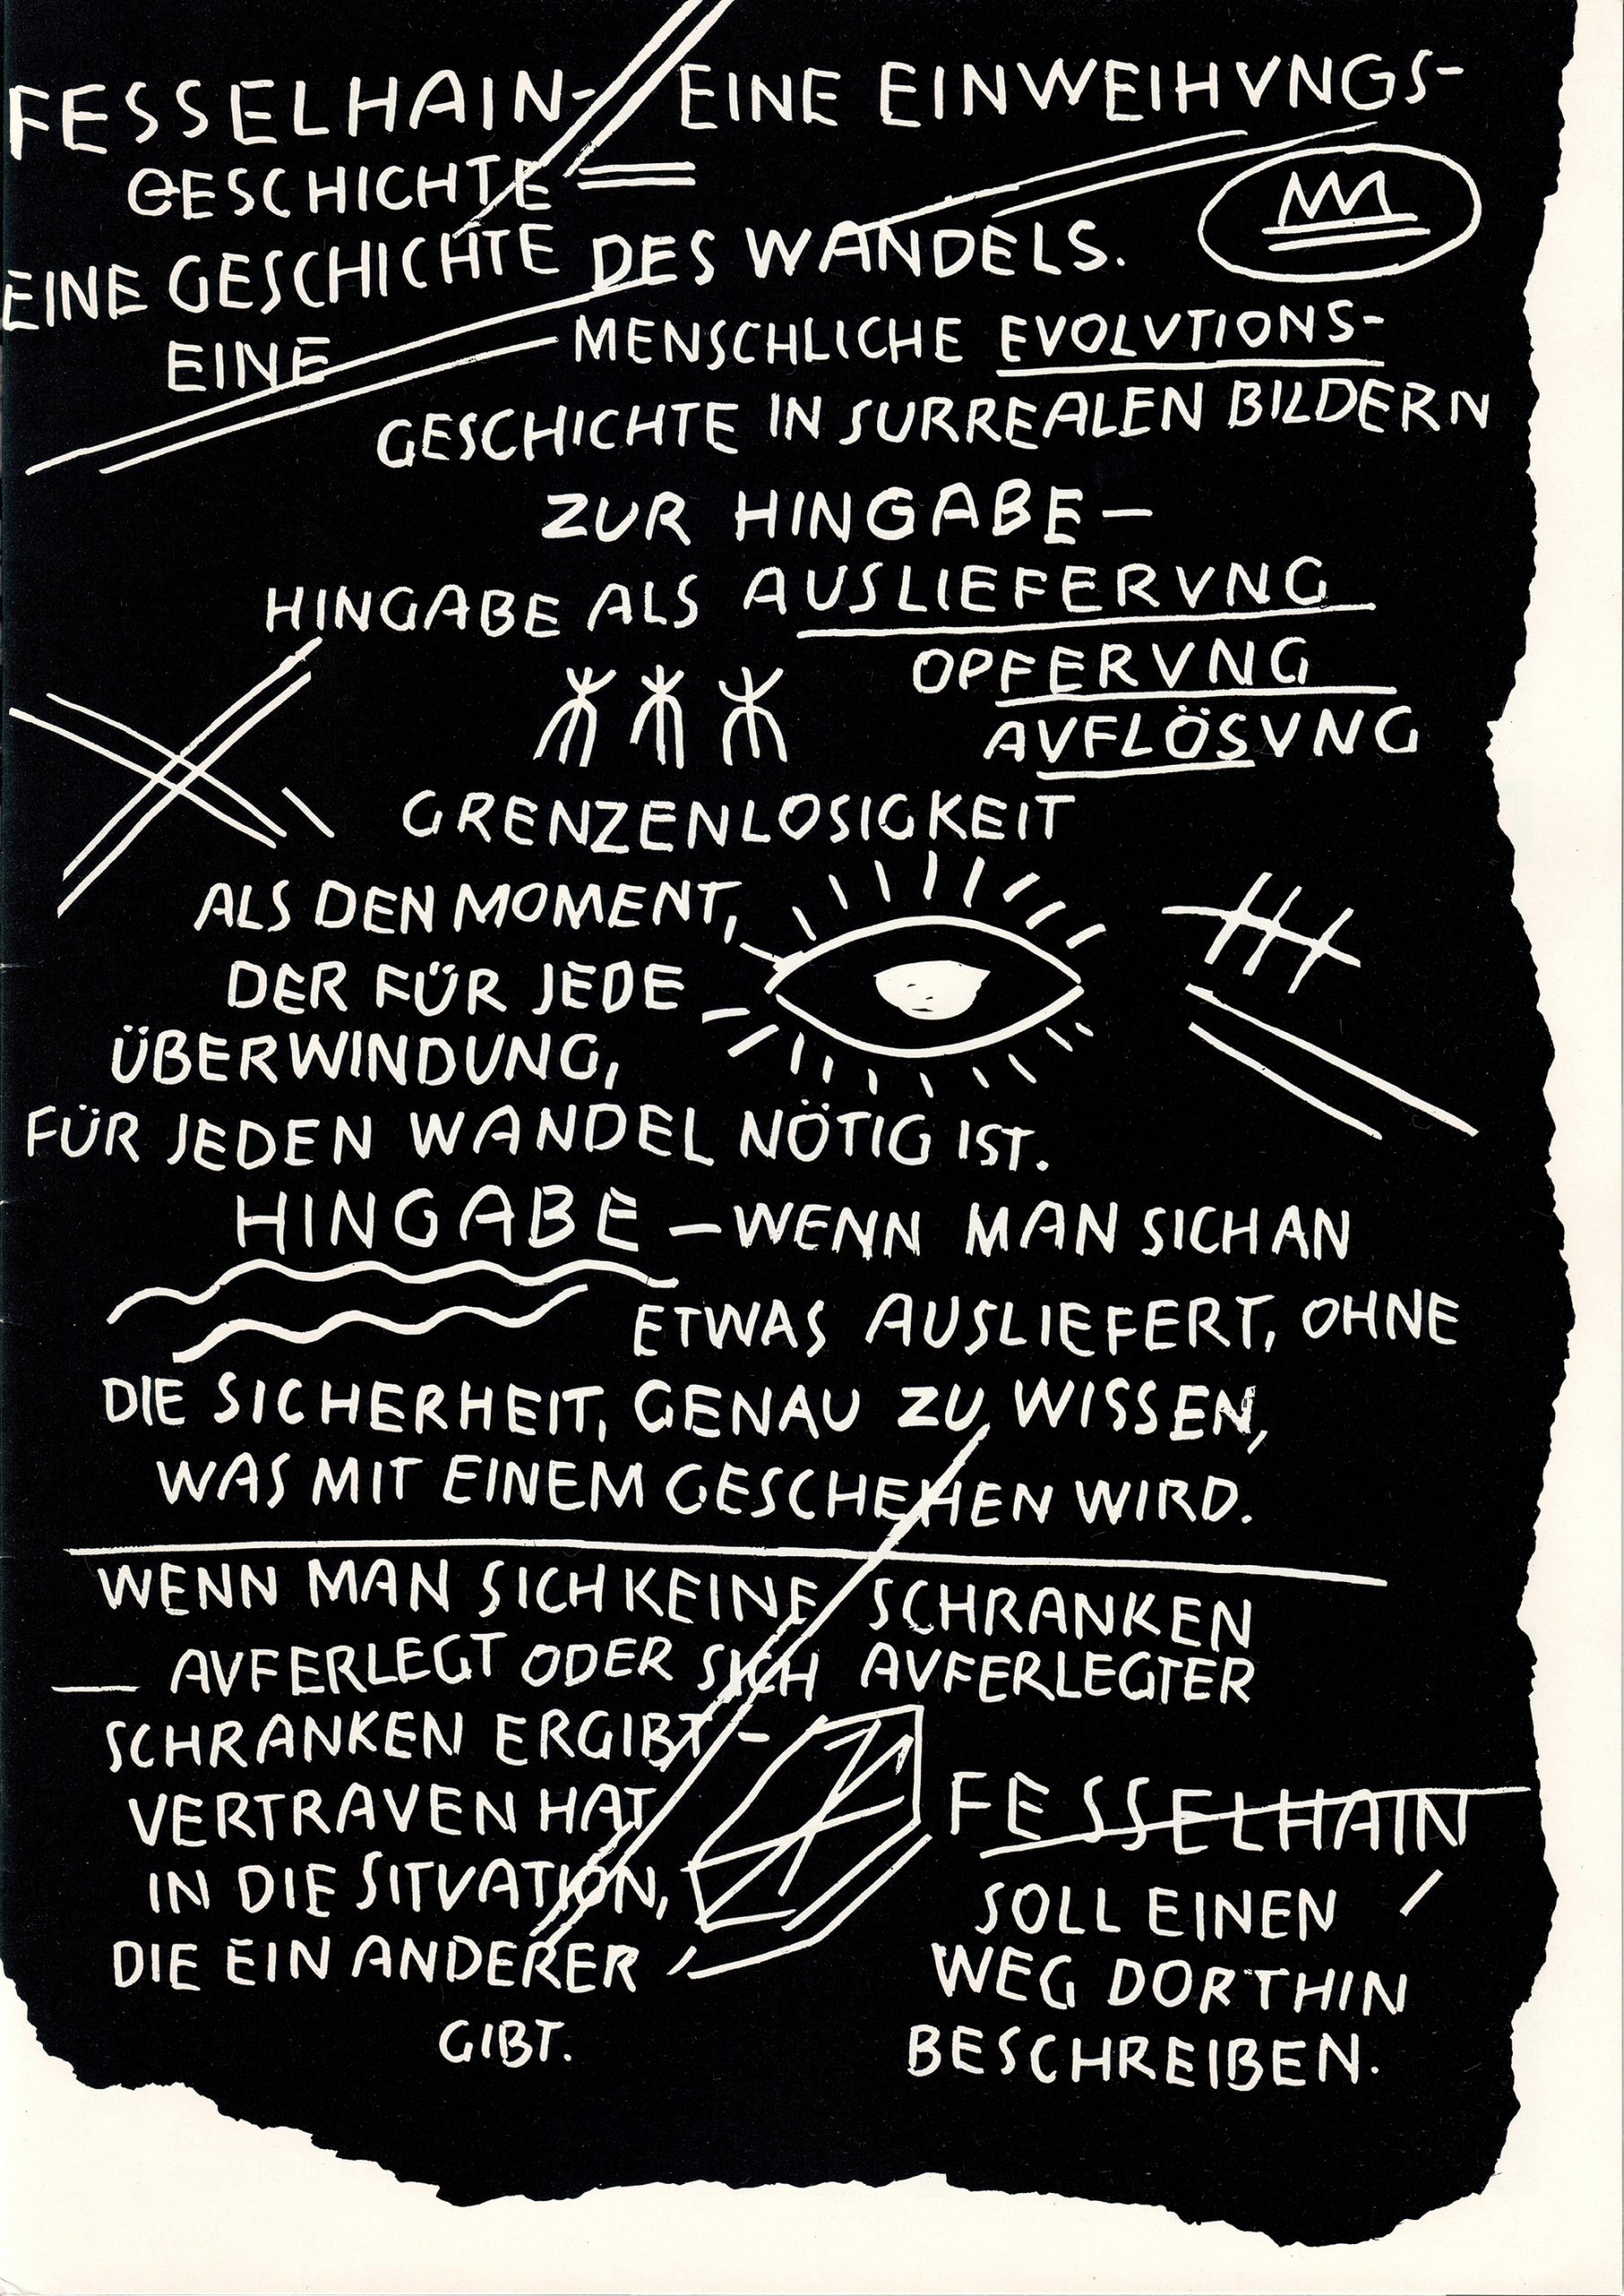 FESSELHAIN- EINE EINWEIHVNGS-
GESCHICHTE
EINE GESCHICHTE DES WANDELS.
EINE MENSCHLICHE EVOLVTIONS-
GESCHICHTE IN SURREALEN BILDERN
ZUR HINGABE—
HINGABE ALS AUSLIEFERVNG
OPFERVNG
AVFLÖSVNG
GRENZENLOSIGKEIT
ALS DEN MOMENT,
DER FÜR JEDE
ÜBERWINDUNG,
FÜR JEDEN WANDEL NÖTIG IST.
HINGABE —WENN MAN SICH AN
ETWAS AUSLIEFERT, OHNE
DIE SICHERHEIT, GENAU ZU WISSEN,
WAS MIT EINEM GESCHEHEN WIRD.
WENN MAN SICH KEINE SCHRANKEN
AVFERLEGT ODER SICH AVFERLEGTER
SCHRANKEN ERGIBT —
VERTRAVEN HAT
IN DIE SITVATION,
DIE EIN ANDERER
GIBT.
FESSELHAIN
SOLL EINEN
WEG DORTHIN
BESCHREIBEN.